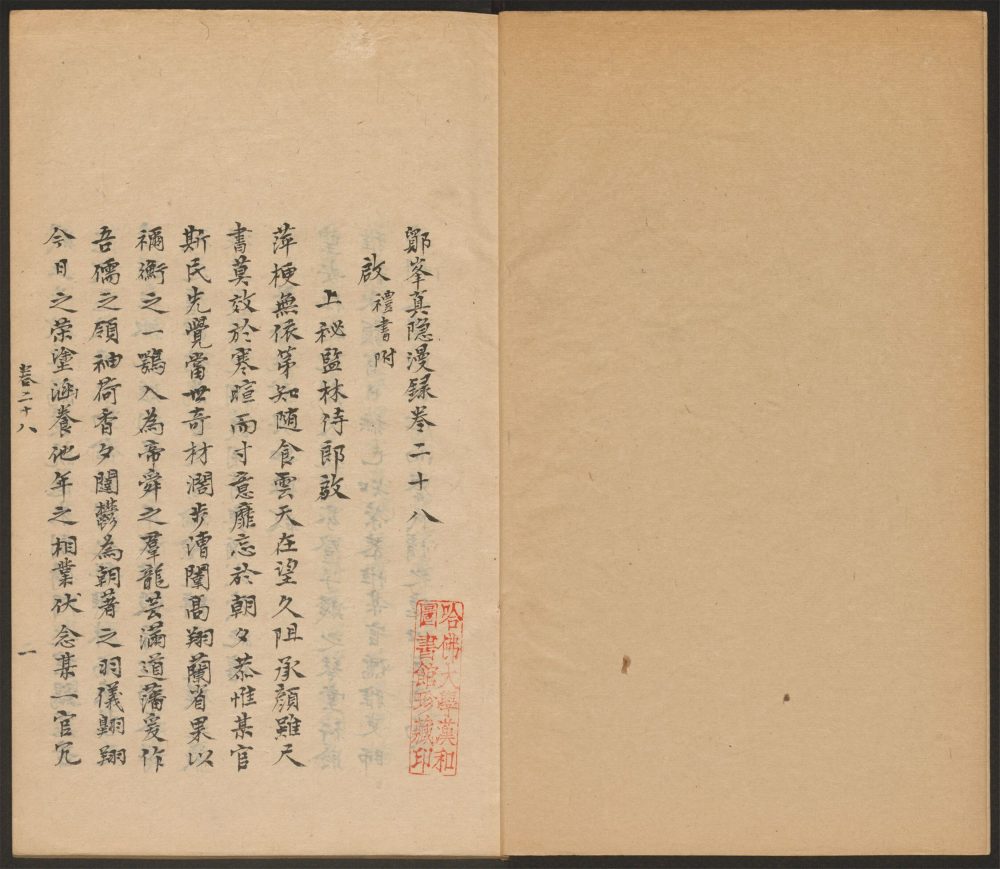 鄮峯真隐漫録卷二十八
啟 禮書附
上祕監林侍郎啟
萍梗無依第知随食雲天在望久阻承顔雖尺
書莫效於寒暄而寸意靡忘於朝夕恭惟某官
斯民先覺當世奇材濶步漕闈髙翔蘭省果以
禰衡之一鶚入為帝舜之羣龍芸滿道藩爰作
吾儒之領袖荷香夕闥欝為朝著之羽儀翺翔
今日之荣塗涵養他年之相業伏念某一官冗
卷二十八
一
哈佛大學漢和
圖書館珍藏印